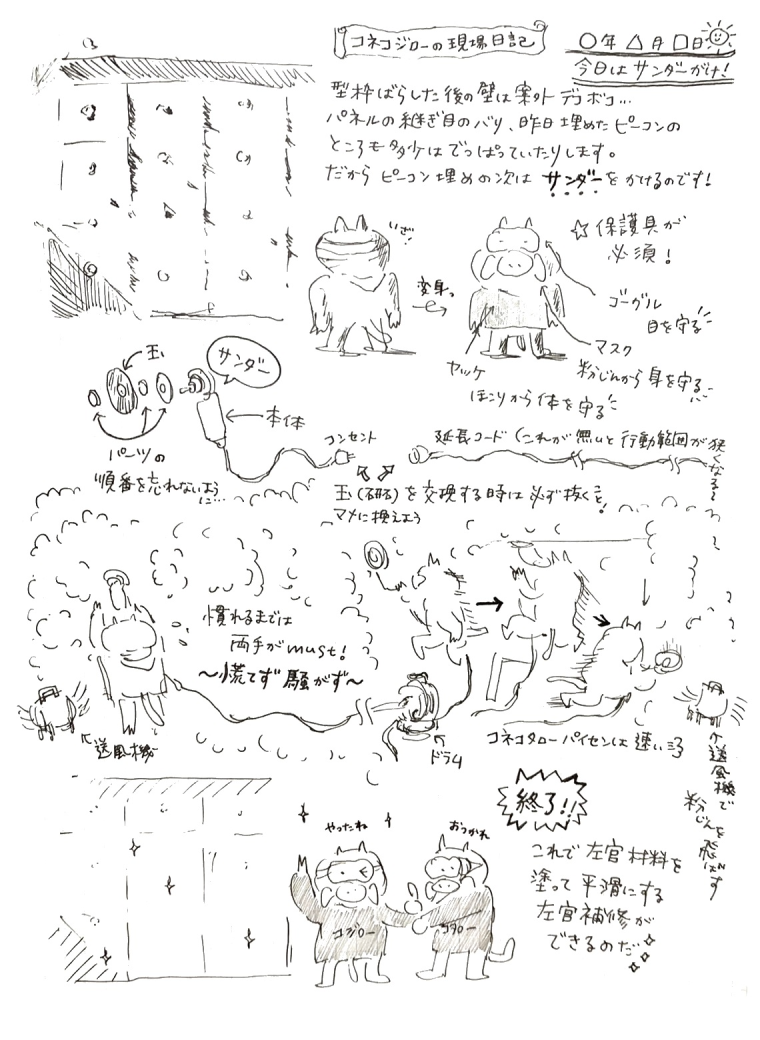 コネコジローの現場日記
○年△月□日
今日はサンダーがけ!
型枠ばらした後の壁は案外デコボコ…
パネルの継ぎ目のバリ、昨日埋めたピーコンの
ところも多少はでっぱっていたりします。
だからピーコン埋めの次はサンダーをかけるのです!
いざ!
変身っ
☆保護具が
必須!
ゴーグル
目を守る
マスク
粉じんから身を守る
ヤッケ
ほこりから体を守る
玉
サンダー
本体
パーツの
順番を忘れないように…
コンセント
延長コード(これが無いと行動範囲が狭くなる〜
玉(研る)を交換する時は必ず抜くこと!
マメに換えよう
慣れるまでは
両手がmust!
〜慌てず騒がず〜
送風機
ドラム
コネコタローパイセンは速い
送風機で
粉じんを飛ばす
やったね
おつかれ
コジロー
コタロー
終了!!
これで左官材料を
塗って平滑にする
左官補修が
できるのだ